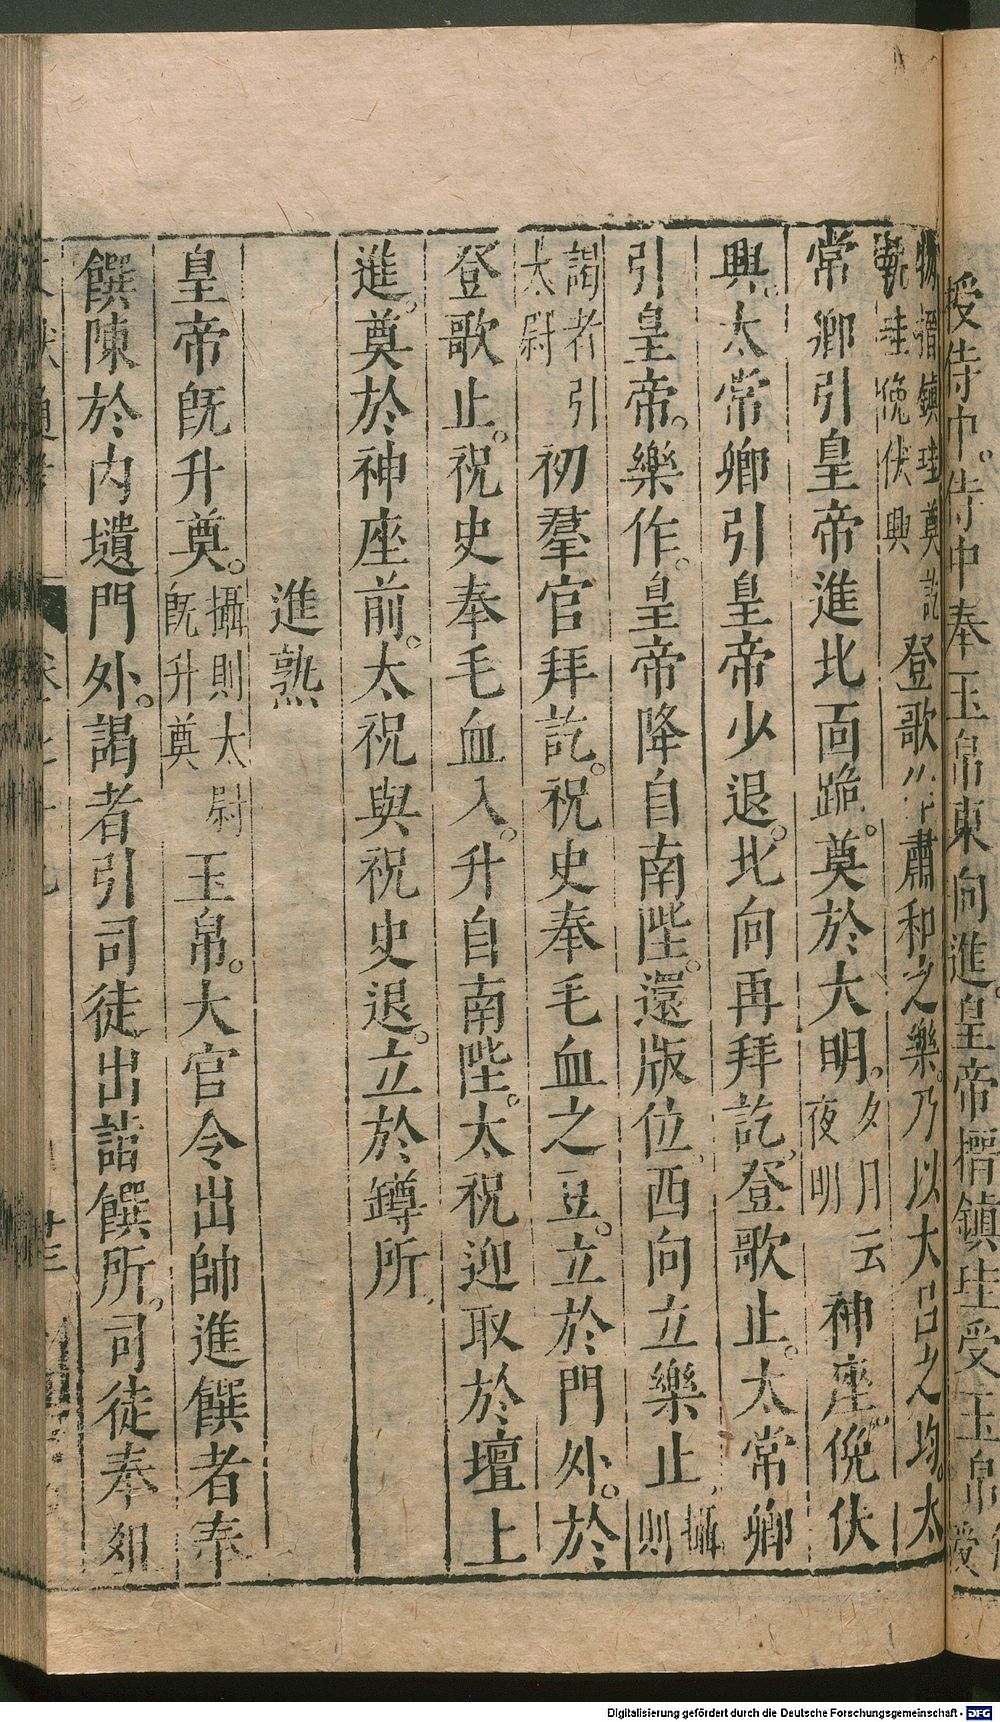 授侍中。侍中奉玉帛東向進。皇帝搢鎮珪受玉帛
物搢鎮珪奠訖
執珪俛伏興
登歌作肅和之樂。乃以大呂之均。太
常卿引皇帝進北面跪。奠於大明。夕月云夜明神座俛伏
興。太常卿引皇帝少退。北向再拜訖。登歌止。太常卿
引皇帝。樂作。皇帝降自南陛。還版位西向立樂止攝則
謁者引太尉初羣官拜訖。祝史奉毛血之豆。立於門外。於
登歌止。祝史奉毛血入。升自南陛。太祝迎取於壇上
進。奠於神座前。太祝與祝史退。立於罇所
進熟
皇帝旣升奠。攝則大尉旣升奠玉帛。大官令出帥進饌者奉
饌陳於內壝門外。謁者引司徒出詣饌所。司徒奉俎
廿三
Digitalisierung gefördert durch die Deutsche Forschungsgemeinschaft - DFG